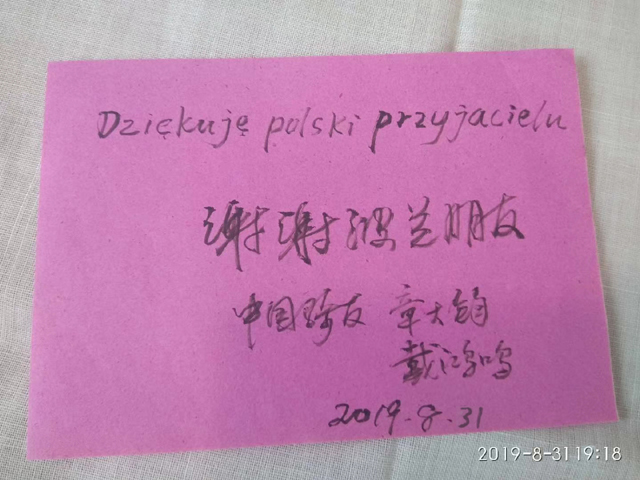 Dziękuję polski przyjacielu
谢谢波兰朋友
中国骑友 章大钧
戴鸿鸣
2019.8.31
2019-8-31 19:18